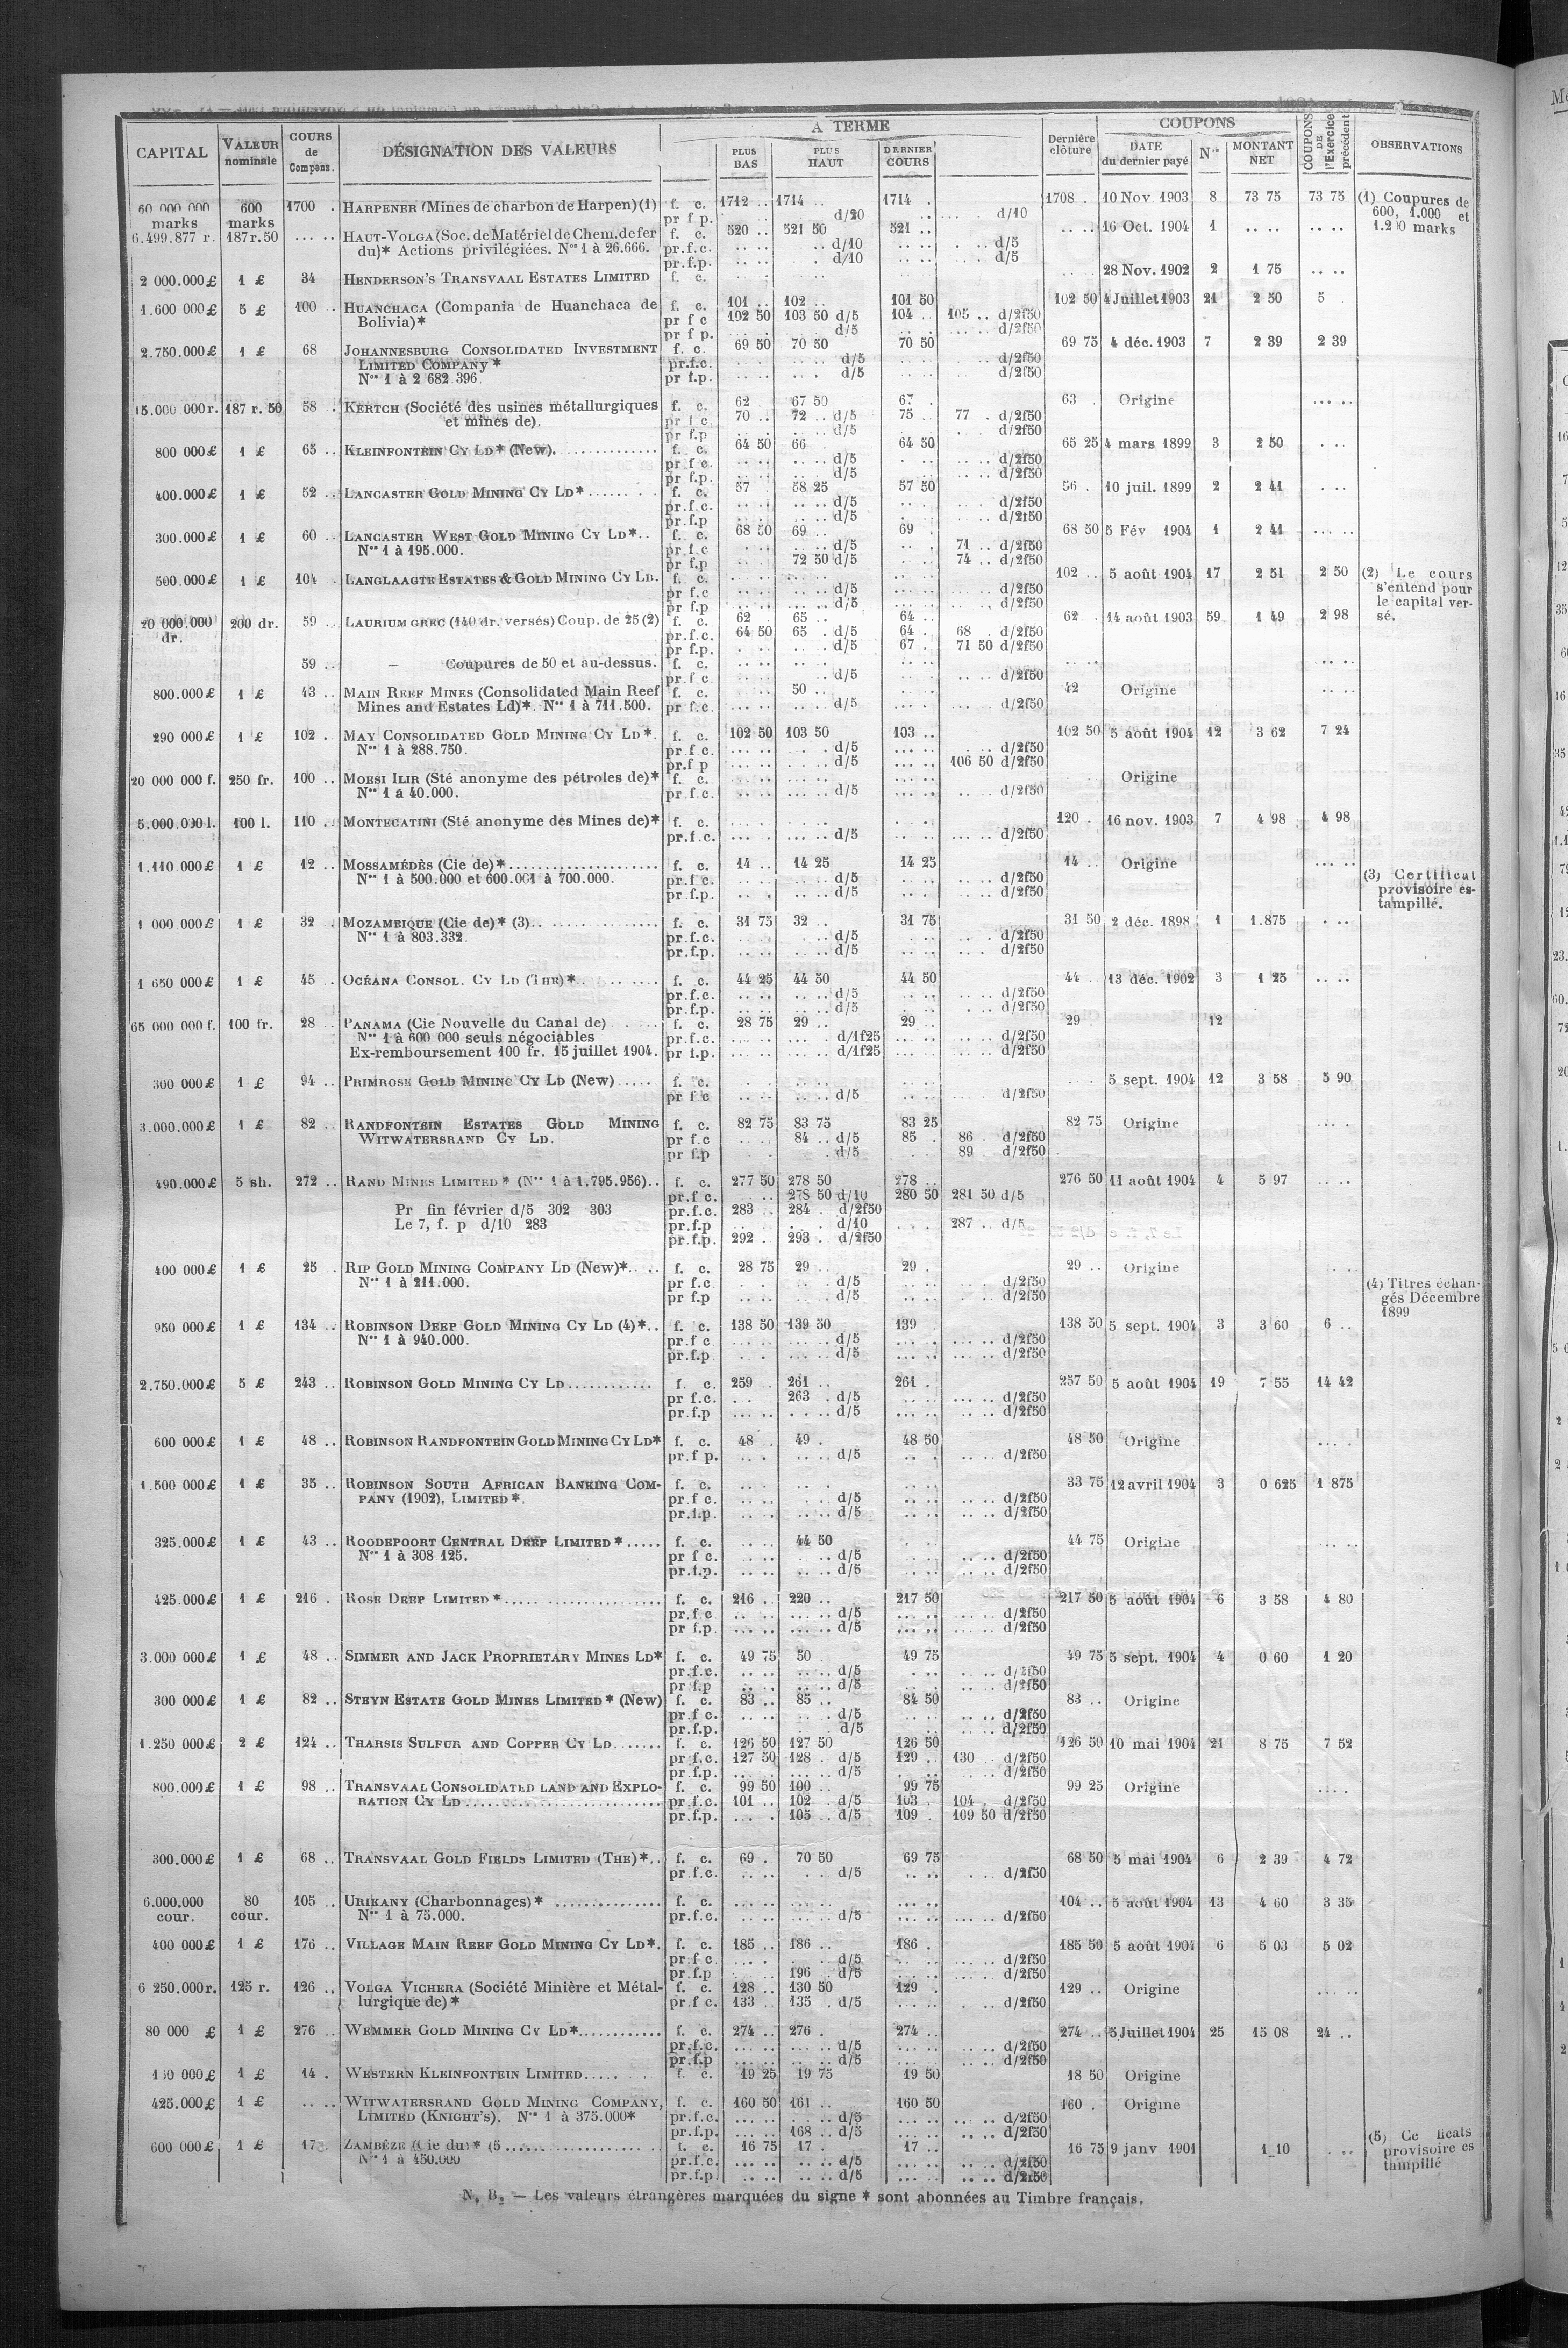 CAPITAL | VALEUR nominale | COURS de Compens. | DÉSIGNATION DES VALEURS | A TERME | PLUS BAS | PLUS HAUT | DERNIER COURS | Dernière clôture | COUPONS | DATE du dernier payé | Nos | MONTANT NET | COUPONS DE l'Exercice précédent | OBSERVATIONS
60 000 000 marks | 600 marks | 1700 . | HARPENER (Mines de charbon de Harpen) (1) | f. c. | 1712 .. | 1714 .. | 1714 . | 1708 . | 10 Nov 1903 | 8 | 73 75 | 73 75 | (1) Coupures de
pr f p. | d/20 | d/10 | 600, 1.000 et
6.499.877 r. | 187 r. 50 | .. .. | HAUT-VOLGA (Soc. de Matériel de Chem. de fer | f. c. | 520 .. | 521 50 | 521 .. | .. .. | 16 Oct. 1904 | 1 | .. .. | .. .. | 1.200 marks
du)* Actions privilégiées. Nos 1 à 26.666. | pr.f.c. | d/10 | d/5
pr.f.p. | d/10 | d/5
2 000.000 £ | 1 £ | 34 | HENDERSON'S TRANSVAAL ESTATES LIMITED | f. c. | 28 Nov. 1902 | 2 | 1 75 | .. ..
1.600 000 £ | 5 £ | 100 .. | HUANCHACA (Compania de Huanchaca de | f. c. | 101 .. | 102 .. | 101 50 | 102 50 | 4 Juillet 1903 | 21 | 2 50 | 5
Bolivia)* | pr f c | 102 50 | 103 50 d/5 | 104 .. | 105 .. d/2f50
pr f p. | d/5 | d/2f50
2.750.000 £ | 1 £ | 68 | JOHANNESBURG CONSOLIDATED INVESTMENT | f. c. | 69 50 | 70 50 | 70 50 | 69 75 | 4 déc. 1903 | 7 | 2 39 | 2 39
LIMITED COMPANY * | pr.f.c. | d/5 | d/2f50
Nos 1 à 2 682 396. | pr f.p. | d/5 | d/2f50
15.000 000 r. | 187 r. 50 | 58 .. | KERTCH (Société des usines métallurgiques | f. c. | 62 | 67 50 | 67 . | 63 . | Origine | .. ..
et mines de). | pr f c | 70 .. | 72 .. d/5 | 75 .. | 77 . d/2f50
pr f.p | d/5 | d/2f50
800 000 £ | 1 £ | 65 .. | KLEINFONTEIN CY LD* (New). | f. c. | 64 50 | 66 | 64 50 | 65 25 | 4 mars 1899 | 3 | 2 50 | . ..
pr f c. | d/5 | d/2f50
pr f.p. | d/5 | d/2f50
400.000 £ | 1 £ | 52 .. | LANCASTER GOLD MINING CY LD* | f. c. | 57 | 58 25 | 57 50 | 56 . | 10 juil. 1899 | 2 | 2 41 | . ..
pr.f.c. | d/5 | d/2f50
pr.f.p | d/5 | d/2f50
300.000 £ | 1 £ | 60 .. | LANCASTER WEST GOLD MINING CY LD*.. | f. c. | 68 50 | 69 .. | 69 . | 68 50 | 5 Fév 1904 | 1 | 2 41 | .. ..
Nos 1 à 195.000. | pr.f.c | d/5 | 71 .. d/2f50
pr f.p | 72 50 d/5 | 74 .. d/2f50
500.000 £ | 1 £ | 104 . | LANGLAAGTE ESTATES & GOLD MINING CY LD. | f. c. | 102 .. | 5 août 1904 | 17 | 2 51 | 2 50 | (2) Le cours
pr f.c | d/5 | d/2f50 | s'entend pour
pr f.p | d/5 | d/2f50 | le capital ver-
20 000.000 dr. | 200 dr. | 59 .. | LAURIUM GREC (140 dr. versés) Coup. de 25 (2) | f. c. | 62 | 65 .. | 64 .. | 62 . | 14 août 1903 | 59 | 1 49 | 2 98 | sé.
pr.f.c. | 64 50 | 65 . d/5 | 64 . | 68 . d/2f50
pr f.p. | d/5 | 67 . | 71 50 d/2f50
59 .. | — Coupures de 50 et au-dessus. | f. c. | .. ..
pr.f c | d/5 | d/2f50
800.000 £ | 1 £ | 43 .. | MAIN REEF MINES (Consolidated Main Reef | f. c. | 50 .. | 42 | Origine | .. ..
Mines and Estates Ld)*. Nos 1 à 711.500. | pr f.c. | d/5 | d/2f50
290 000 £ | 1 £ | 102 . | MAY CONSOLIDATED GOLD MINING CY LD*. | f. c. | 102 50 | 103 50 | 103 .. | 102 50 | 5 août 1904 | 12 | 3 62 | 7 24
Nos 1 à 288.750. | pr f c. | d/5 | d/2f50
pr.f p | d/5 | 106 50 d/2f50
20 000 000 f. | 250 fr. | 100 .. | MOESI ILIR (Sté anonyme des pétroles de)* | f. c. | Origine
Nos 1 à 40.000. | pr.f.c. | d/5 | d/2f50
5.000.000 l. | 100 l. | 110 . | MONTECATINI (Sté anonyme des Mines de)* | f. c. | 120 . | 16 nov. 1903 | 7 | 4 98 | 4 98
pr.f.c. | d/5 | d/2f50
1.110 000 £ | 1 £ | 12 .. | MOSSAMÉDÈS (Cie de)* | f. c. | 14 .. | 14 25 | 14 25 | 14 .. | Origine | .. ..
Nos 1 à 500.000 et 600.001 à 700.000. | pr.f c. | d/5 | d/2f50 | (3) Certificat
pr.f.p. | d/5 | d/2f50 | provisoire es-
tampillé.
1 000 000 £ | 1 £ | 32 . | MOZAMBIQUE (Cie de)* (3).. | f. c. | 31 75 | 32 .. | 31 75 | 31 50 | 2 déc. 1898 | 1 | 1.875 | . ..
Nos 1 à 803.332. | pr.f.c. | d/5 | d/2f50
pr.f.p. | d/5 | d/2f50
1 650 000 £ | 1 £ | 45 .. | OCÉANA CONSOL. CY LD (THE)* | f. c. | 44 25 | 44 50 | 44 50 | 44 .. | 13 déc. 1902 | 3 | 1 25 | .. ..
pr.f.c. | d/5 | d/2f50
pr.f.p. | d/5 | d/2f50
65 000 000 f. | 100 fr. | 28 .. | PANAMA (Cie Nouvelle du Canal de) | f. c. | 28 75 | 29 .. | 29 .. | 29 . | 12
Nos 1 à 600 000 seuls négociables | pr.f.c. | d/1f25 | d/2f50
Ex-remboursement 100 fr. 15 juillet 1904. | pr f.p. | d/1f25 | d/2f50
300 000 £ | 1 £ | 94 .. | PRIMROSE GOLD MINING CY LD (New) | f. c. | 5 sept. 1904 | 12 | 3 58 | 5 90
pr f c | d/5 | d/2f50
3.000.000 £ | 1 £ | 82 .. | RANDFONTEIN ESTATES GOLD MINING | f. c. | 82 75 | 83 75 | 83 25 | 82 75 | Origine | .. .
WITWATERSRAND CY LD. | pr f.c | 84 .. d/5 | 85 . | 86 . d/2f50
pr f.p | d/5 | 89 d/2f50
490.000 £ | 5 sh. | 272 .. | RAND MINES LIMITED * (Nos 1 à 1.795.956).. | f. c. | 277 50 | 278 50 | 278 .. | 276 50 | 11 août 1904 | 4 | 5 97 | .. ..
pr.f c. | 278 50 d/10 | 280 50 | 281 50 d/5
Pr fin février d/5 302 303 | pr.f.c. | 283 .. | 284 . d/2f50
Le 7, f. p d/10 283 | pr.f.p | d/10 | 287 .. d/5
pr.f.p. | 292 . | 293 . d/2f50
400 000 £ | 1 £ | 25 . | RIP GOLD MINING COMPANY LD (New)*.. | f. c. | 28 75 | 29 .. | 29 . | 29 .. | Origine
Nos 1 à 211.000. | pr f.c | d/5 | d/2f50 | (4) Titres échan-
pr f.p | d/5 | d/2f50 | gés Décembre
1899
950 000 £ | 1 £ | 134 .. | ROBINSON DEEP GOLD MINING CY LD (4)*.. | f. c. | 138 50 | 139 50 | 139 | 138 50 | 5 sept. 1904 | 3 | 3 60 | 6 ..
Nos 1 à 940.000. | pr.f c | d/5 | d/2f50
pr.f.p | d/5 | d/2f50
2.750.000 £ | 5 £ | 243 .. | ROBINSON GOLD MINING CY LD | f. c. | 259 | 261 .. | 261 . | 257 50 | 5 août 1904 | 19 | 7 55 | 14 42
pr f.c. | 263 . d/5 | d/2f50
pr.f.p | d/5 | d/2f50
600 000 £ | 1 £ | 48 .. | ROBINSON RANDFONTEIN GOLD MINING CY LD* | f. c. | 48 . | 49 . | 48 50 | 48 50 | Origine | .. .
pr.f p. | d/5 | d/2f50
1.500 000 £ | 1 £ | 35 .. | ROBINSON SOUTH AFRICAN BANKING COM- | f. c. | 33 75 | 12 avril 1904 | 3 | 0 625 | 1 875
PANY (1902), LIMITED*. | pr.f c. | d/5 | d/2f50
pr.f.p. | d/5 | d/2f50
325.000 £ | 1 £ | 43 .. | ROODEPOORT CENTRAL DEEP LIMITED * | f. c. | 44 50 | 44 75 | Origine | .. ..
Nos 1 à 308 125. | pr f c. | d/5 | d/2f50
pr.f.p. | d/5 | d/2f50
425.000 £ | 1 £ | 216 . | ROSE DEEP LIMITED * | f. c. | 216 .. | 220 .. | 217 50 | 217 50 | 5 août 1904 | 6 | 3 58 | 4 80
pr.f.c | d/5 | d/2f50
pr f.p. | d/5 | d/2f50
3.000 000 £ | 1 £ | 48 .. | SIMMER AND JACK PROPRIETARY MINES LD* | f. c. | 49 75 | 50 | 49 75 | 49 75 | 5 sept. 1904 | 4 | 0 60 | 1 20
pr.f.c. | d/5 | d/2f50
pr f.p | d/5 | d/2f50
300 000 £ | 1 £ | 82 .. | STEYN ESTATE GOLD MINES LIMITED * (New) | f. c. | 83 .. | 85 .. | 84 50 | 83 .. | Origine
pr f c. | d/5 | d/2f50
pr.f.p. | d/5 | d/2f50
1.250 000 £ | 2 £ | 124 .. | THARSIS SULFUR AND COPPER CY LD | f. c. | 126 50 | 127 50 | 126 50 | 126 50 | 10 mai 1904 | 21 | 8 75 | 7 52
pr f.c. | 127 50 | 128 . d/5 | 129 . | 130 . d/2f50
pr f.p. | d/5 | d/2f50
800.000 £ | 1 £ | 98 .. | TRANSVAAL CONSOLIDATED LAND AND EXPLO- | f. c. | 99 50 | 100 .. | 99 75 | 99 25 | Origine | .. .
RATION CY LD | pr.f.c. | 101 .. | 102 . d/5 | 103 . | 104 . d/2f50
pr.f.p. | 105 .. d/5 | 109 . | 109 50 d/2f50
300.000 £ | 1 £ | 68 .. | TRANSVAAL GOLD FIELDS LIMITED (THE)*.. | f. c. | 69 . | 70 50 | 69 75 | 68 50 | 5 mai 1904 | 6 | 2 39 | 4 72
pr.f.c. | d/5 | d/2f50
6.000.000 cour. | 80 cour. | 105 .. | URIKANY (Charbonnages)* | f. c. | 104 .. | 5 août 1904 | 13 | 4 60 | 3 35
Nos 1 à 75.000. | pr.f.c. | d/5 | d/2f50
400 000 £ | 1 £ | 176 .. | VILLAGE MAIN REEF GOLD MINING CY LD*. | f. c. | 185 .. | 186 .. | 186 . | 185 50 | 5 août 1904 | 6 | 5 03 | 5 02
pr.f c | d/5 | d/2f50
pr.f.p | 196 . d/5 | d/2f50
6 250.000 r. | 125 r. | 126 .. | VOLGA VICHERA (Société Minière et Métal- | f. c. | 128 .. | 130 50 | 129 . | 129 .. | Origine | .. ..
lurgique de)* | pr.f c. | 133 .. | 135 . d/5 | d/2f50
80 000 £ | 1 £ | 276 .. | WEMMER GOLD MINING CY LD* | f. c. | 274 .. | 276 . | 274 .. | 274 .. | 5 Juillet 1904 | 25 | 15 08 | 24 ..
pr.f.c. | d/5 | d/2f50
pr.f.p | d/5 | d/2f50
1 £ | 14 . | WESTERN KLEINFONTEIN LIMITED | f. c. | 19 25 | 19 75 | 19 50 | 18 50 | Origine
425.000 £ | 1 £ | .. .. | WITWATERSRAND GOLD MINING COMPANY, | f. c. | 160 50 | 161 .. | 160 50 | 160 . | Origine
LIMITED (KNIGHT'S). Nos 1 à 375.000* | pr.f.c. | d/5 | d/2f50
pr.f.p. | 168 .. d/5 | d/2f50
600 000 £ | 1 £ | 17 | ZAMBÈZE (Cie du)* (5 | f. c. | 16 75 | 17 . | 17 .. | 16 75 | 9 janv 1901 | 1 10 | . .. | (5) Ce ficats
Nos 1 à 450.000 | pr.f.c. | d/5 | d/2f50 | provisoire es
pr.f.p. | d/5 | d/2f50 | tampillé
N. B. — Les valeurs étrangères marquées du signe * sont abonnées au Timbre français.